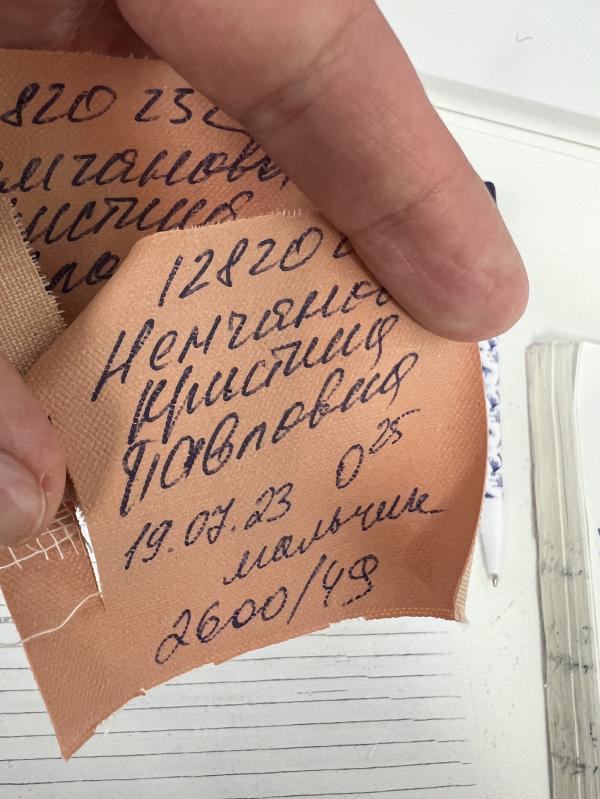 820 232
мчанова
ристина
12820
Немчанов
Кристина
Павловна
19.07.23 0 25
мальчик
2600/49